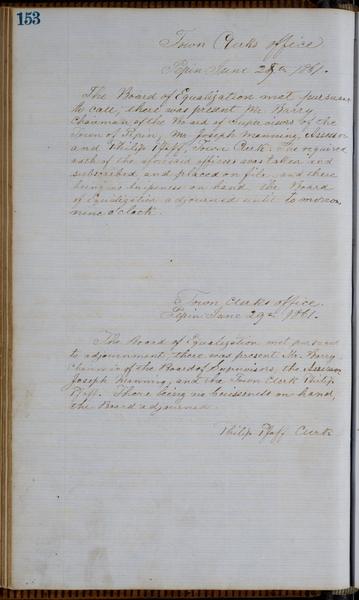 153
Town Clerks office
Pepin June 28th 1861.
The Board of Equalization met pursuant
to call, there was present Mr. Barry
Chairman of the Board of Supervisors of the
Town of Pepin, Mr Joseph Manning, Assessor
and Philip Pfaff, Town Clerk. The required
oath of the aforesaid officers was taken and
subscribed, and placed on file, and there
being no buisness on hand the Board
of Equalization adjourned until to morrow
nine o'clock.
Town Clerks office.
Pepin June 29th 1861.
The Board of Equalization met pursuant
to adjournment, there was present Mr. Barry
of the Board of Supervisors, the Assessor
Joseph Manning, and the Town Clerk Philip
Pfaff. There being no buisness on hand,
the Board adjourned.
Philip Pfaff Clerk